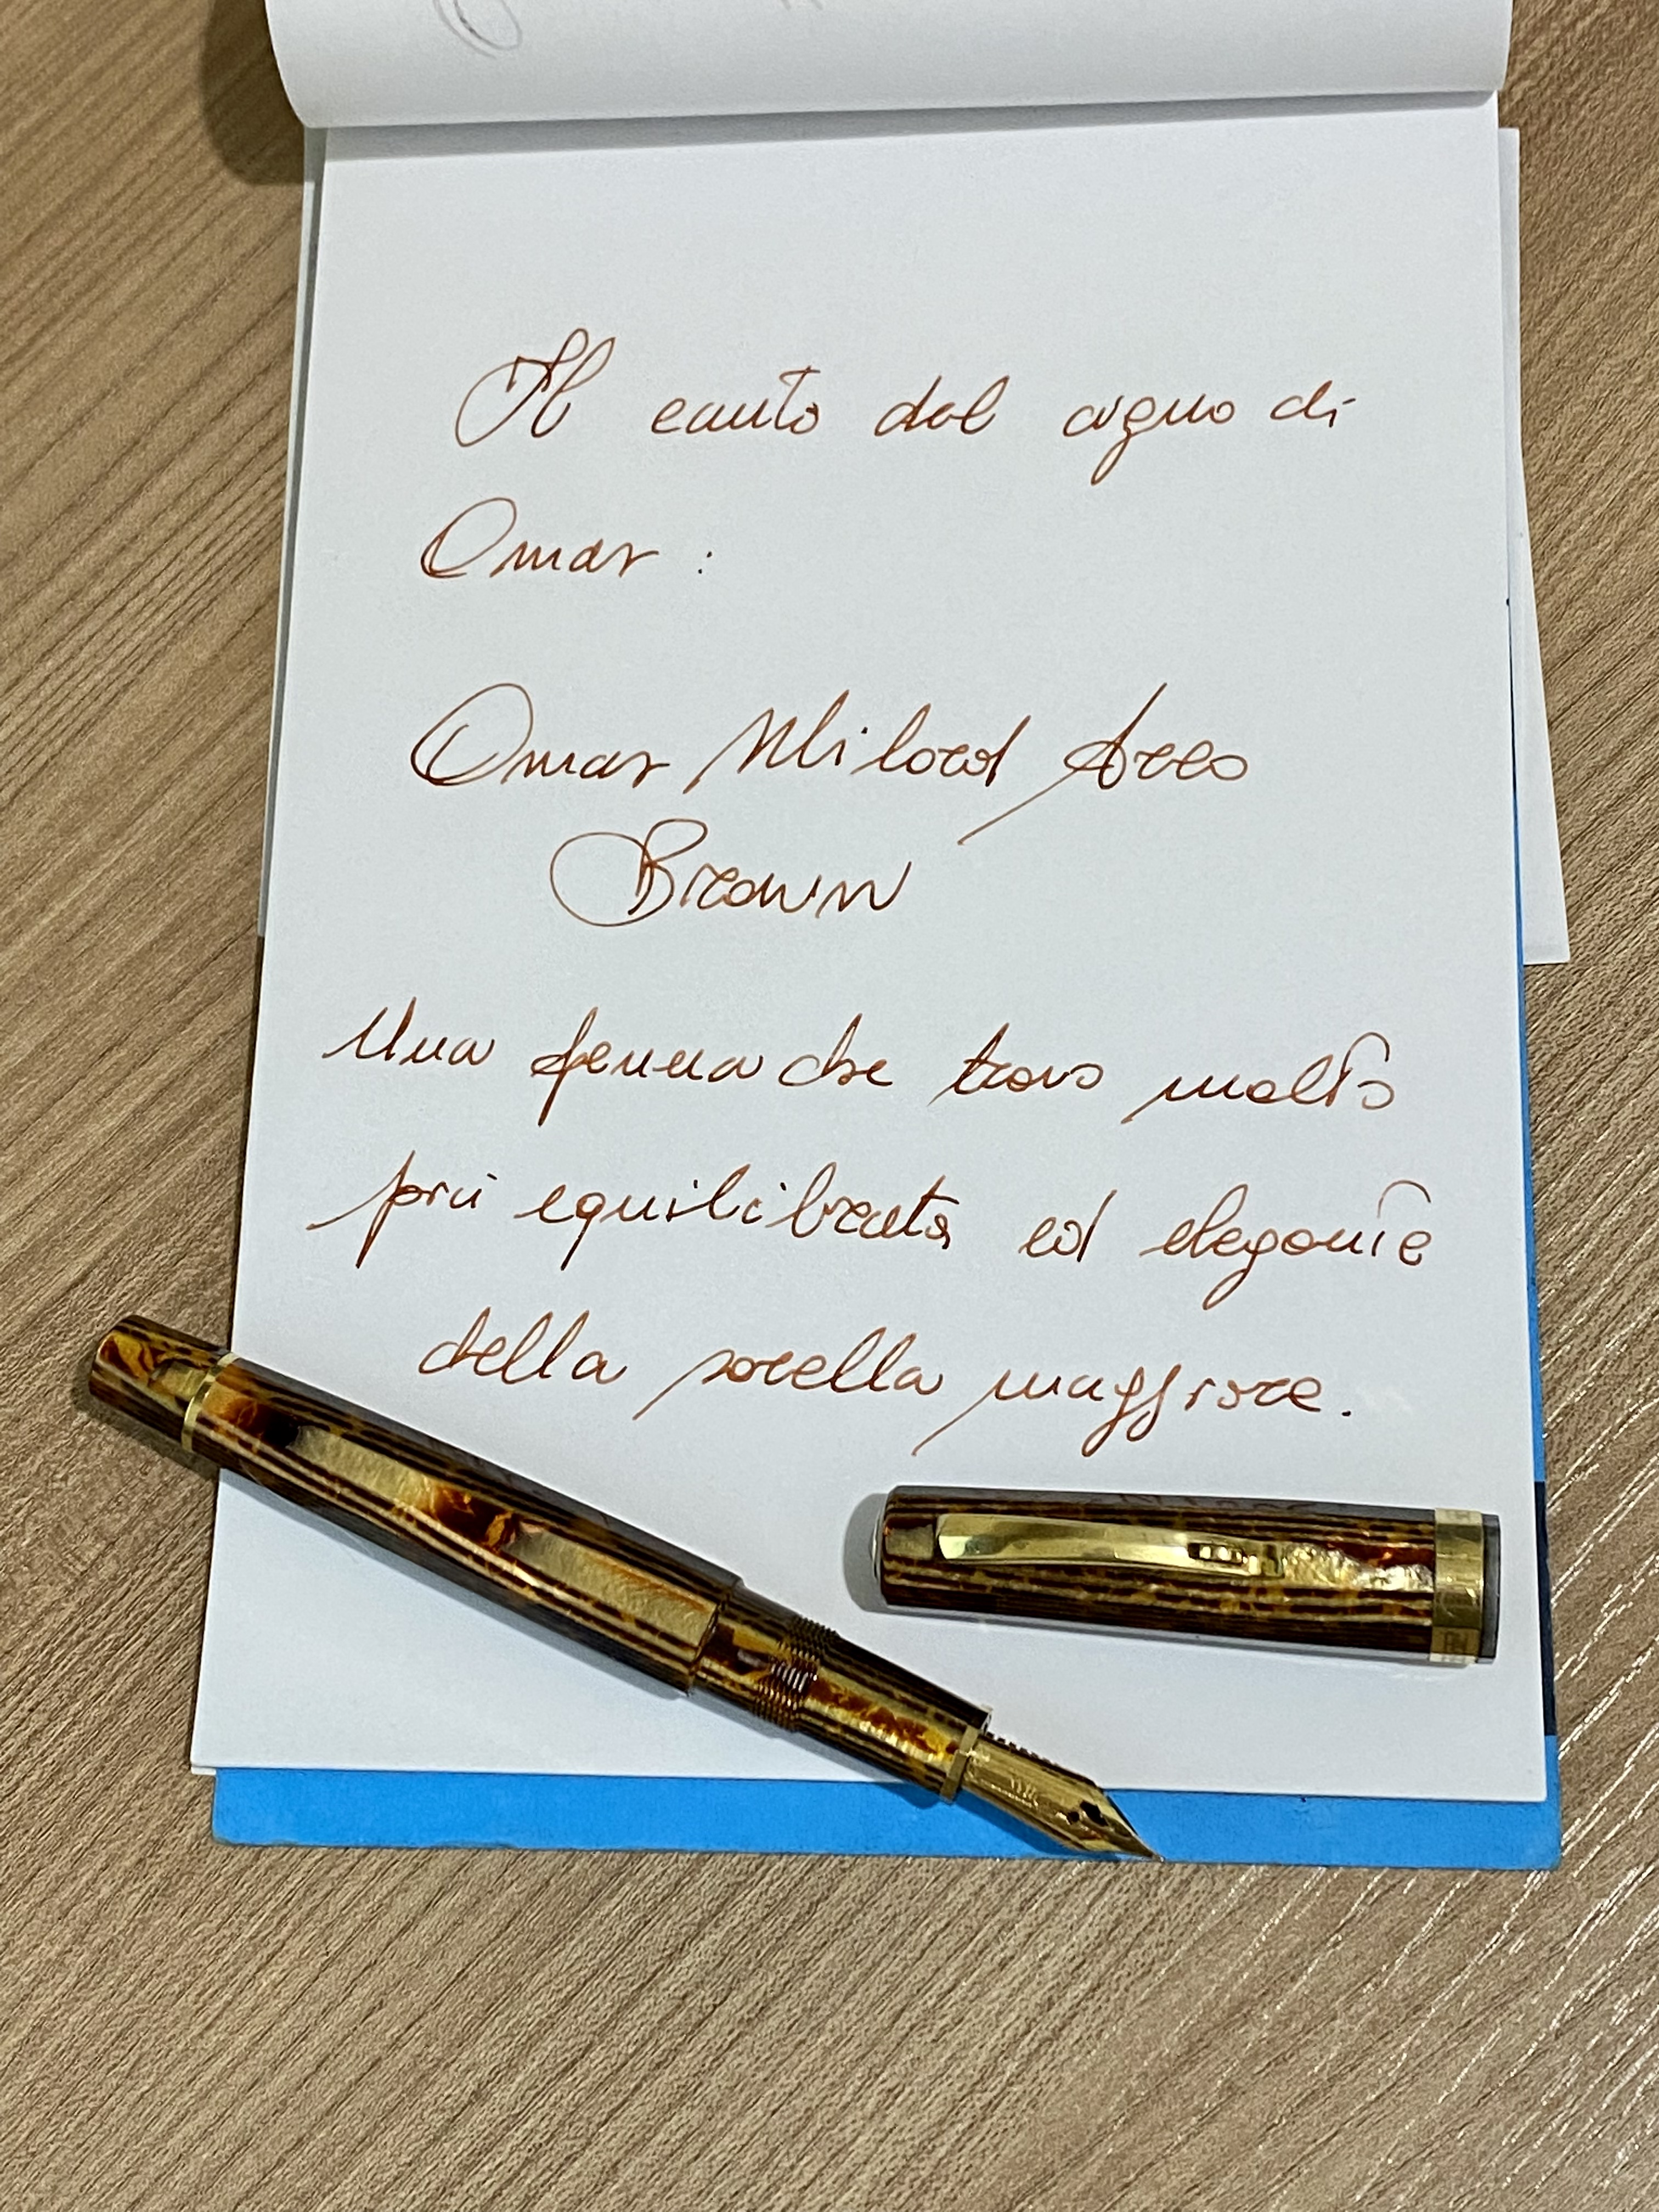 Il canto del cigno di
Omar :
Omar Milord Arco
Brown
Una penna che trovo molto
più equilibrata ed elegante
della sorella maggiore.